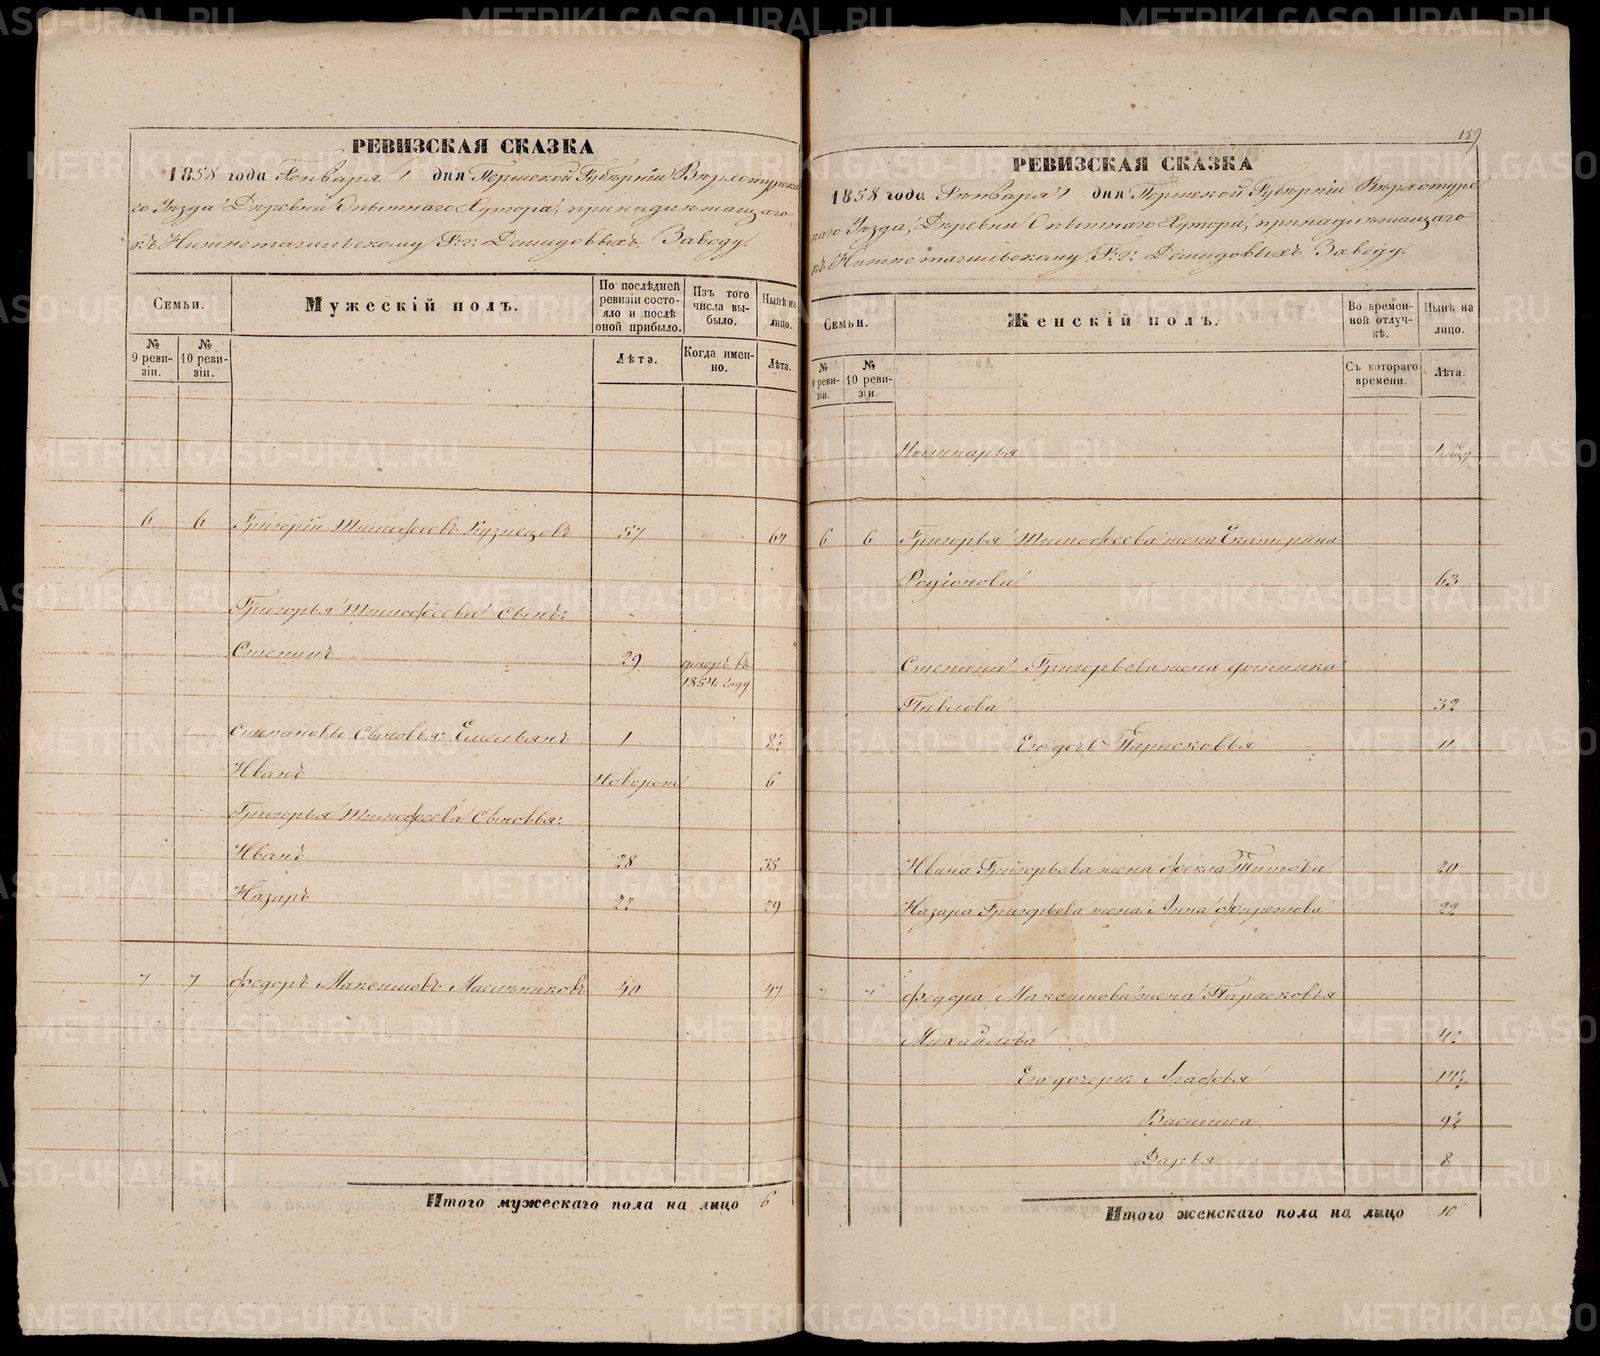 РЕВИЗСКАЯ СКАЗКА
1858 года Генваря 1 дня Пермской Губерніи Верхотурска
го Уезда Деревни Опытнаго Хутора, принадлежащаго
къ Нижнетагильскому Г.г. Демидовыхъ Заводу.
Семьи.
Мужескій полъ.
По послѣдней ревизіи состояло и послѣ оной прибыло.
Изъ того числа выбыло.
Нынѣ на лицо.
№ 9 ревизіи.
№ 10 ревизіи.
Лѣта.
Когда именно.
Лѣта.
6 6 Григорій Тимофеевъ Кузнецовъ 57 64
Григорья Тимофеева Сынъ:
Степанъ 29 умеръ въ
1854 году
Степановы Сыновья: Емельянъ 1 8½
Иванъ новорожд 6
Григорья Тимофеева Сыновья:
Иванъ 28 35
Назаръ 22 29
7 7 Федоръ Максимовъ Масленниковъ 40 47
Итого мужескаго пола на лицо 6
159
РЕВИЗСКАЯ СКАЗКА
1858 года Генваря 1 дня Пермской Губерніи Верхотурс
каго Уезда, Деревни Опытнаго Хутора, принадлежащаго
къ Нижнетагильскому Г.г. Демидовыхъ Заводу.
Семьи.
Женскій полъ.
Во временной отлучкѣ.
Нынѣ на лицо.
№ 9 ревизіи.
№ 10 ревизіи.
Съ котораго времени.
Лѣта.
6 6 Григорья Тимофеева жена Екатерина
Родіонова 63
Степана Григорьева жена
Павлова 32
Его дочь Парасковья 11
Ивана Григорьева жена Фекла Титова 20
Назара Григорьева жена Анна 22
7 7 Федора Максимова жена Парасковья
Михайлова 42
Его дочери: Агафья 14½
Василиса 9½
Дарья 8
Итого женскаго пола на лицо 10
METRIKI.GASO-URAL.RU